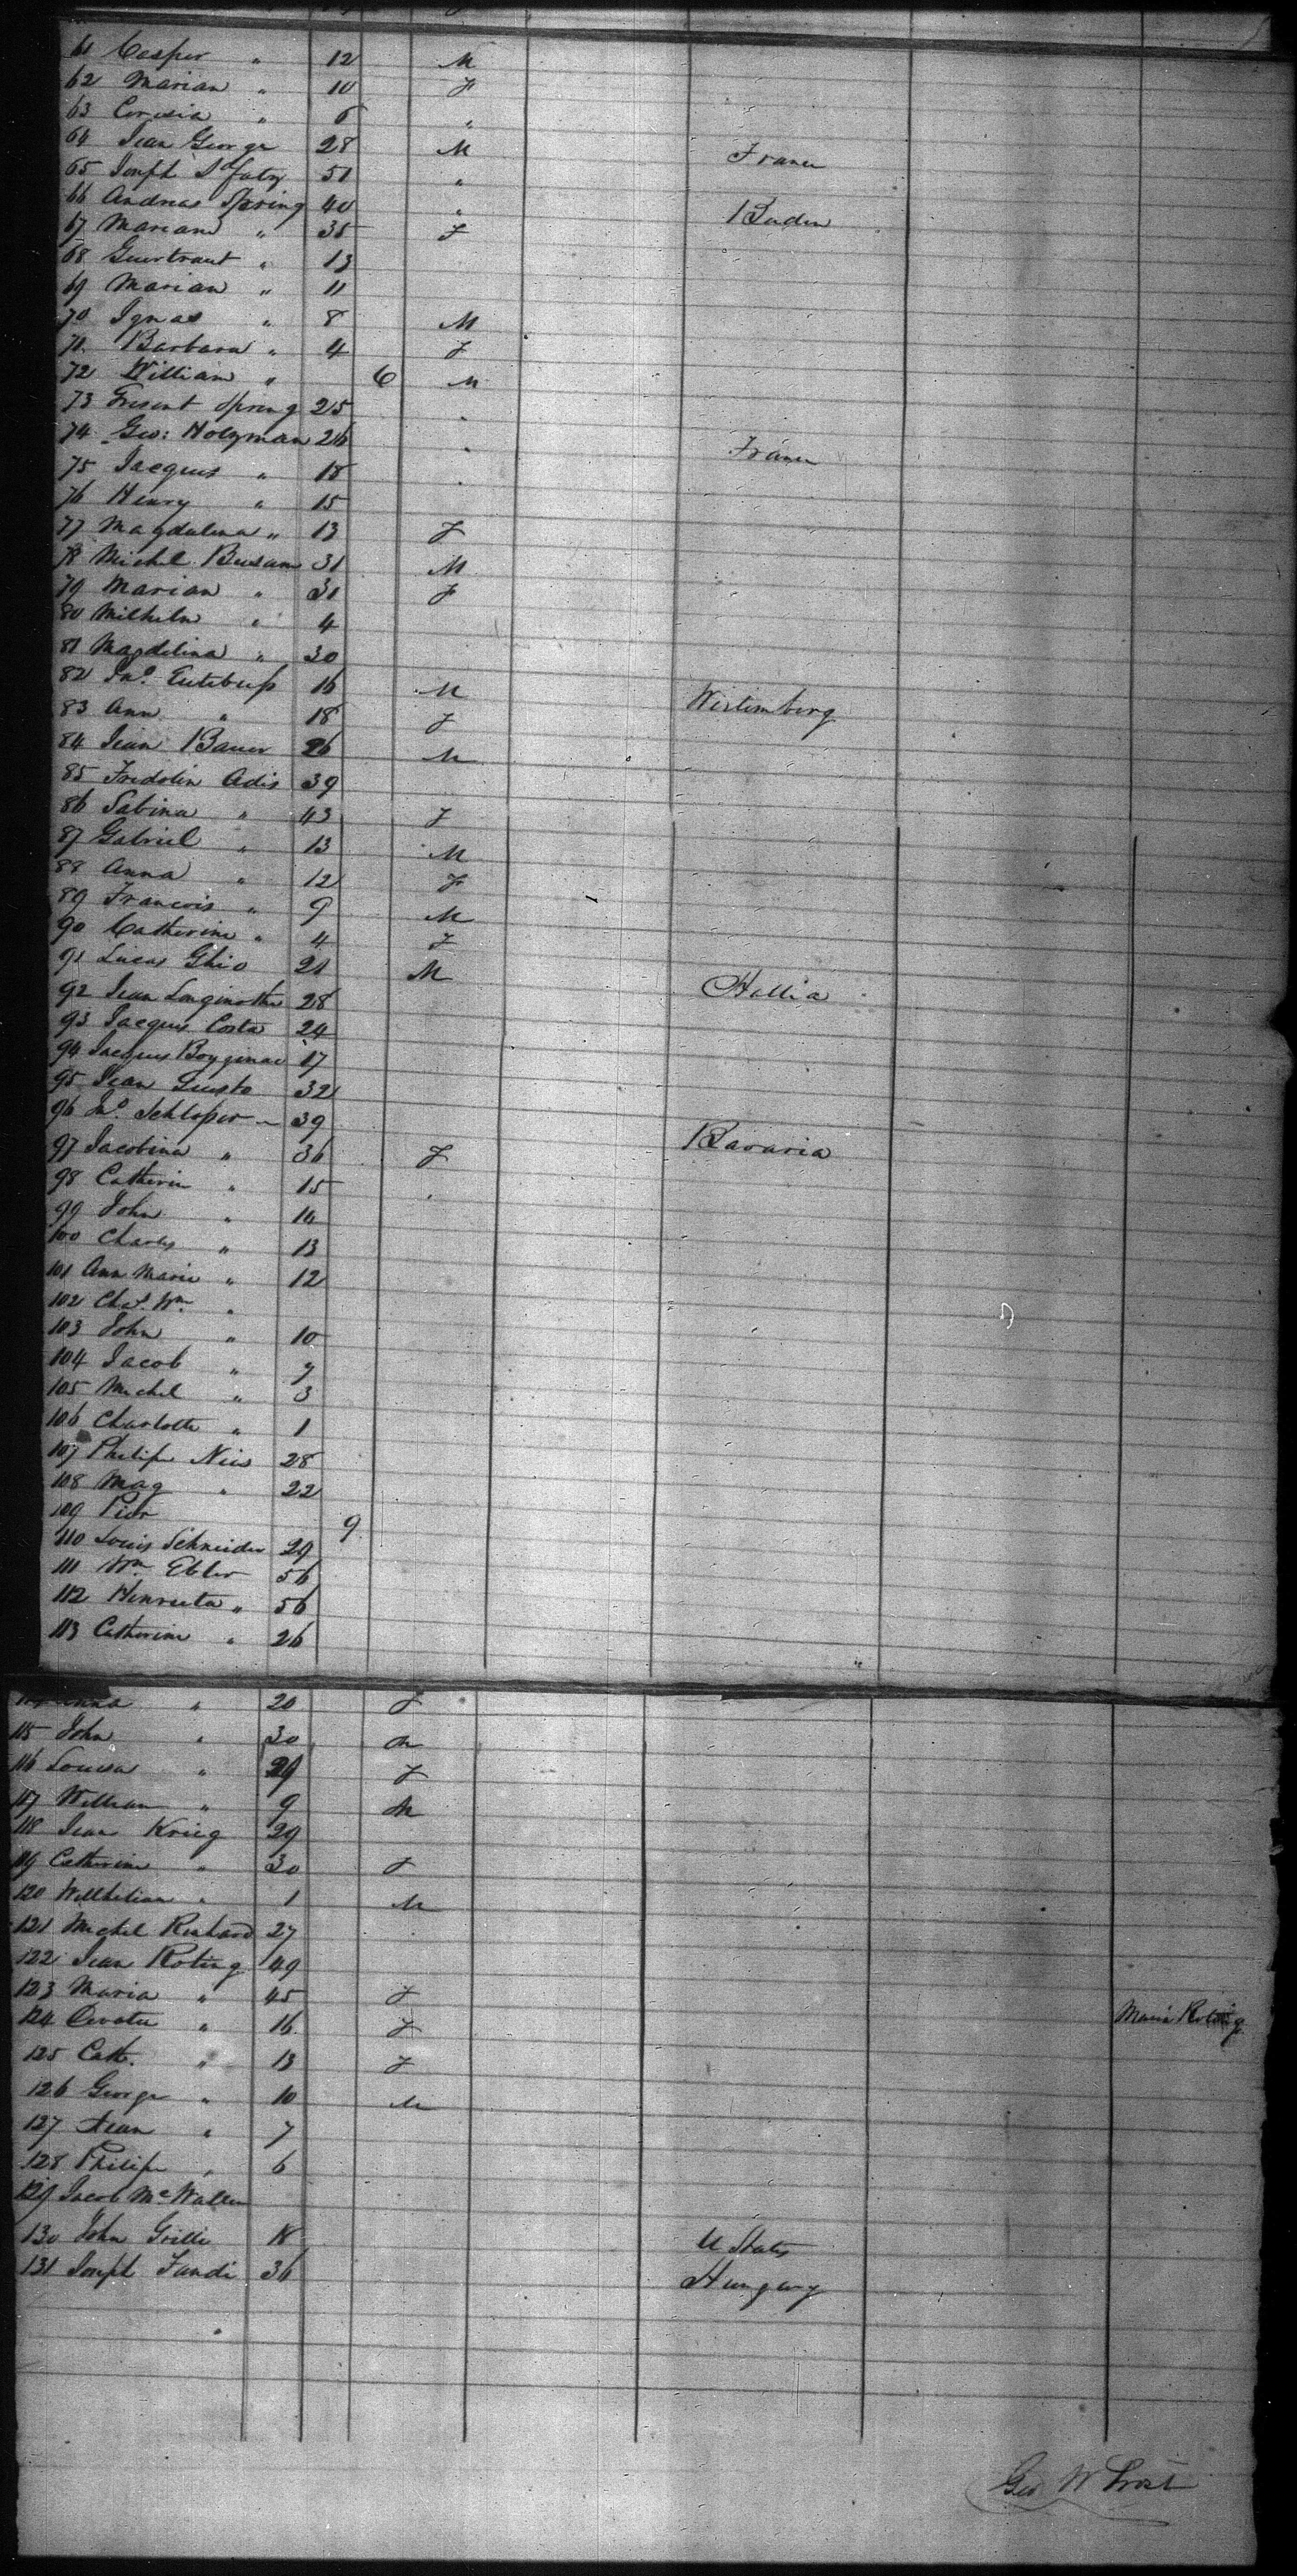 61 Casper " 12 M
62 Marian " 10 F
63 " 6 "
64 Jean George 28 M France
65 Joseph 51 "
66 Andreas Spring 40 " Baden
67 Mariann " 35 F
68 Guertraut " 13
69 Marian " 11
70 Ignas " 8 M
71 Barbara " 4 F
72 William " 6 M
73 Spring 25 "
74 Geo: Holzman 26 " France
75 Jacques " 18 "
76 Henry " 15
77 Magdalena " 13 F
78 Michel Busam 31 M
79 Marian " 31 F
80 Milhelm " 4
81 Magdelina " 30
82 Jno. 16 M Wirtemberg
83 Ann " 18 F
84 Jean Bauer 26 M
85 Fridolin Adis 39
86 Sabina " 43 F
87 Gabriel " 13 M
88 Anna " 12 F
89 Francois " 9 M
90 Catherine " 4 F
91 Lucas Ghio 21 M
92 Jean Longinotti 28 Hallia
93 Jacques Costa 24
94 Jacques 17
95 Jean Gusto 32
96 Jno. Schloper 39
97 Jacobina " 36 F Bavaria
98 Catherin " 15 "
99 John " 14
100 Charles " 13
101 Ann Marie " 12
102 Chas. Wm "
103 John " 10
104 Jacob " 7
105 Michel " 3
106 Charlotte " 1
107 Philip Neis 28
108 Mag " 22
109 Pier 9
110 Louis Schneider 29
111 Wm Ebler 56
112 Henrieta " 56
113 Catherine " 26
114 Anna " 20 F
115 John " 30 M
116 Louisa " 29 F
117 William " 9 M
118 Jean Krieg 29
119 Catherine " 30 F
120 " 1 M
121 Michel Richard 27
122 Jean Roting 49
123 Maria " 45 F
124 " 16 F Maria Roting
125 Cath. " 13 F
126 George " 10 M
127 Jean " 7
128 Philip " 6
129 Jacob McWallen
130 John Grille 18 U States
131 Joseph Fandi 36 Hungary
Geo W Frost